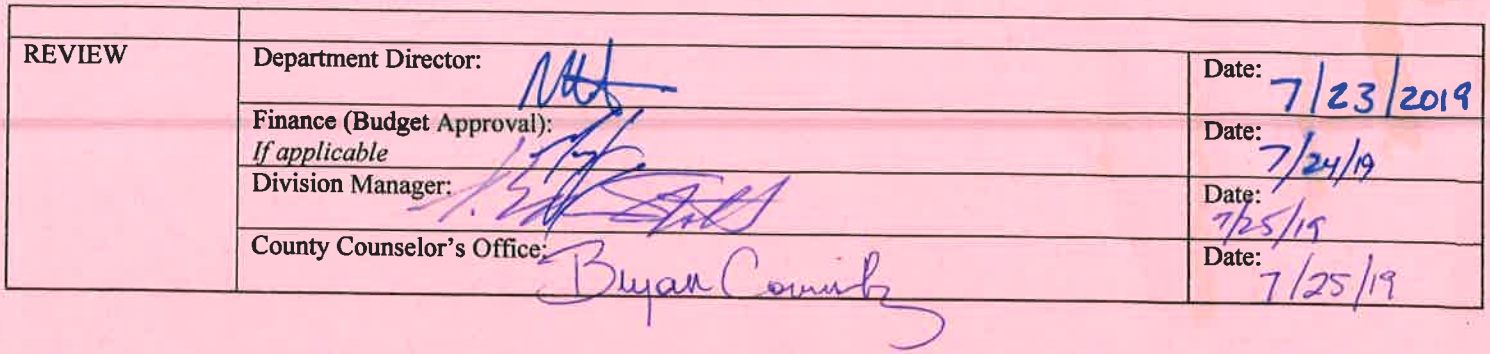 REVIEW
Department Director:
Date: 7/23/2019
Finance (Budget Approval):
If applicable
Date: 7/24/19
Division Manager:
Date: 7/25/19
County Counselor's Office: Bryan
Date: 7/25/19